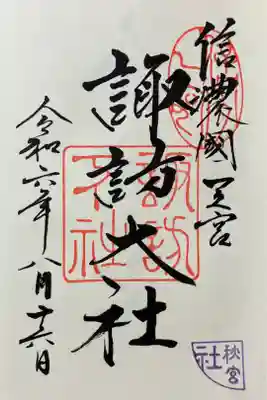 信濃國一之宮
諏訪大社
令和六年八月十六日
諏訪大社
秋宮
社